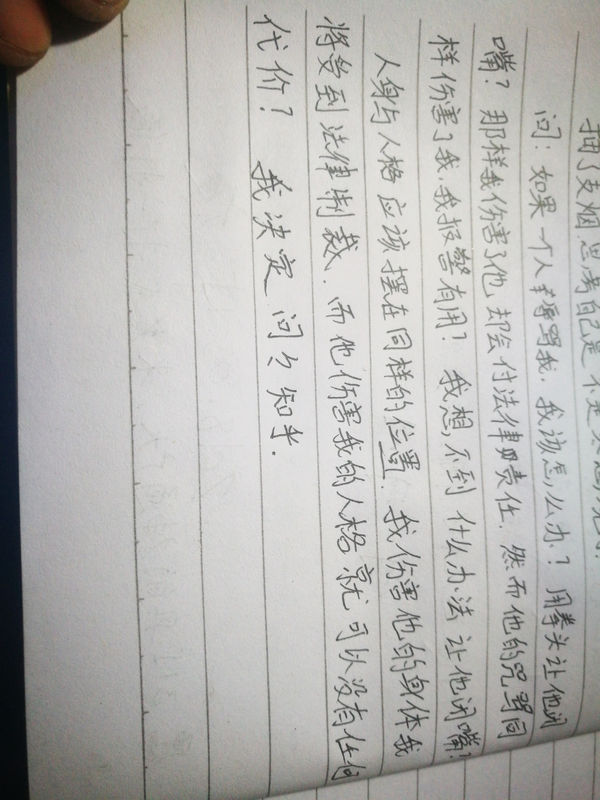 抽了支烟思考自己是不是
问：如果一个人辱骂我，我该怎么办？用拳头让他闭
嘴？那样我伤害了他，却会付法律责任，然而他的咒骂同
样伤害了我，我报警有用？我想不到什么办法让他闭嘴？
人身与人格应该摆在同样的位置，我伤害他的身体我
将受到法律制裁，而他伤害我的人格就可以没有任何
代价？我决定问问知乎.